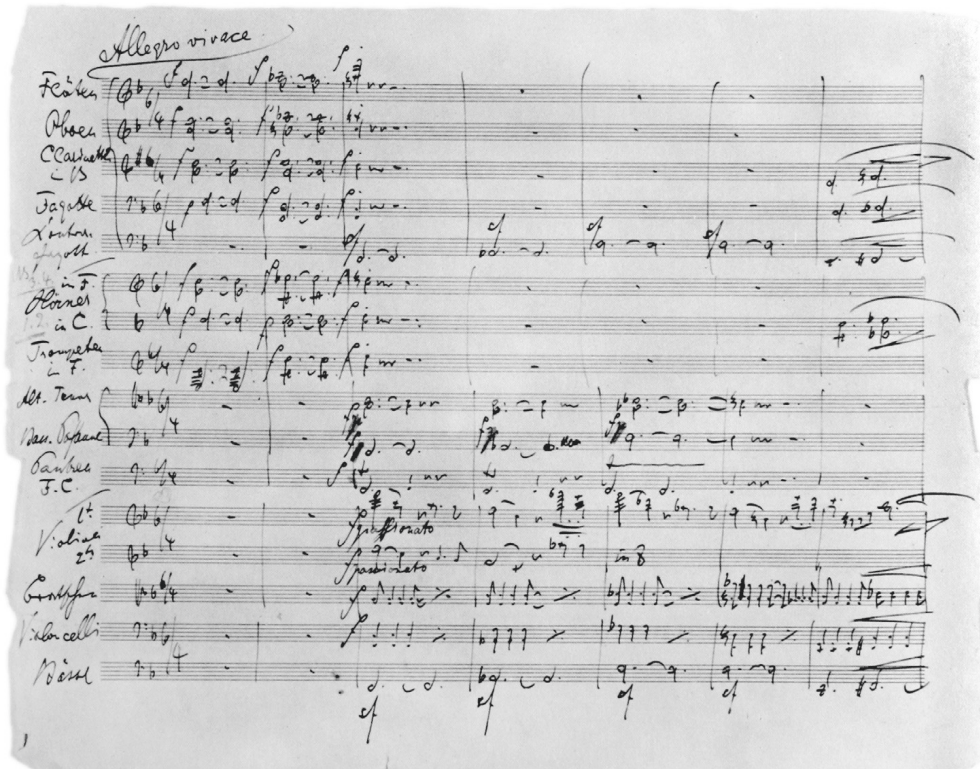 Allegro vivace
Flöten
Oboen
Clarinetten
in B
Fagotte
Contra
fagott.
in F.
Hörner
in C.
Trompeten
in F.
Alt. Tenor
Bass. Posaune
Pauken
F. C.
1te
Violinen
2te
Bratschen
Violoncelli
Bässe
6/4
f
sf
passionato
passionato
in 8
sf sf sf sf